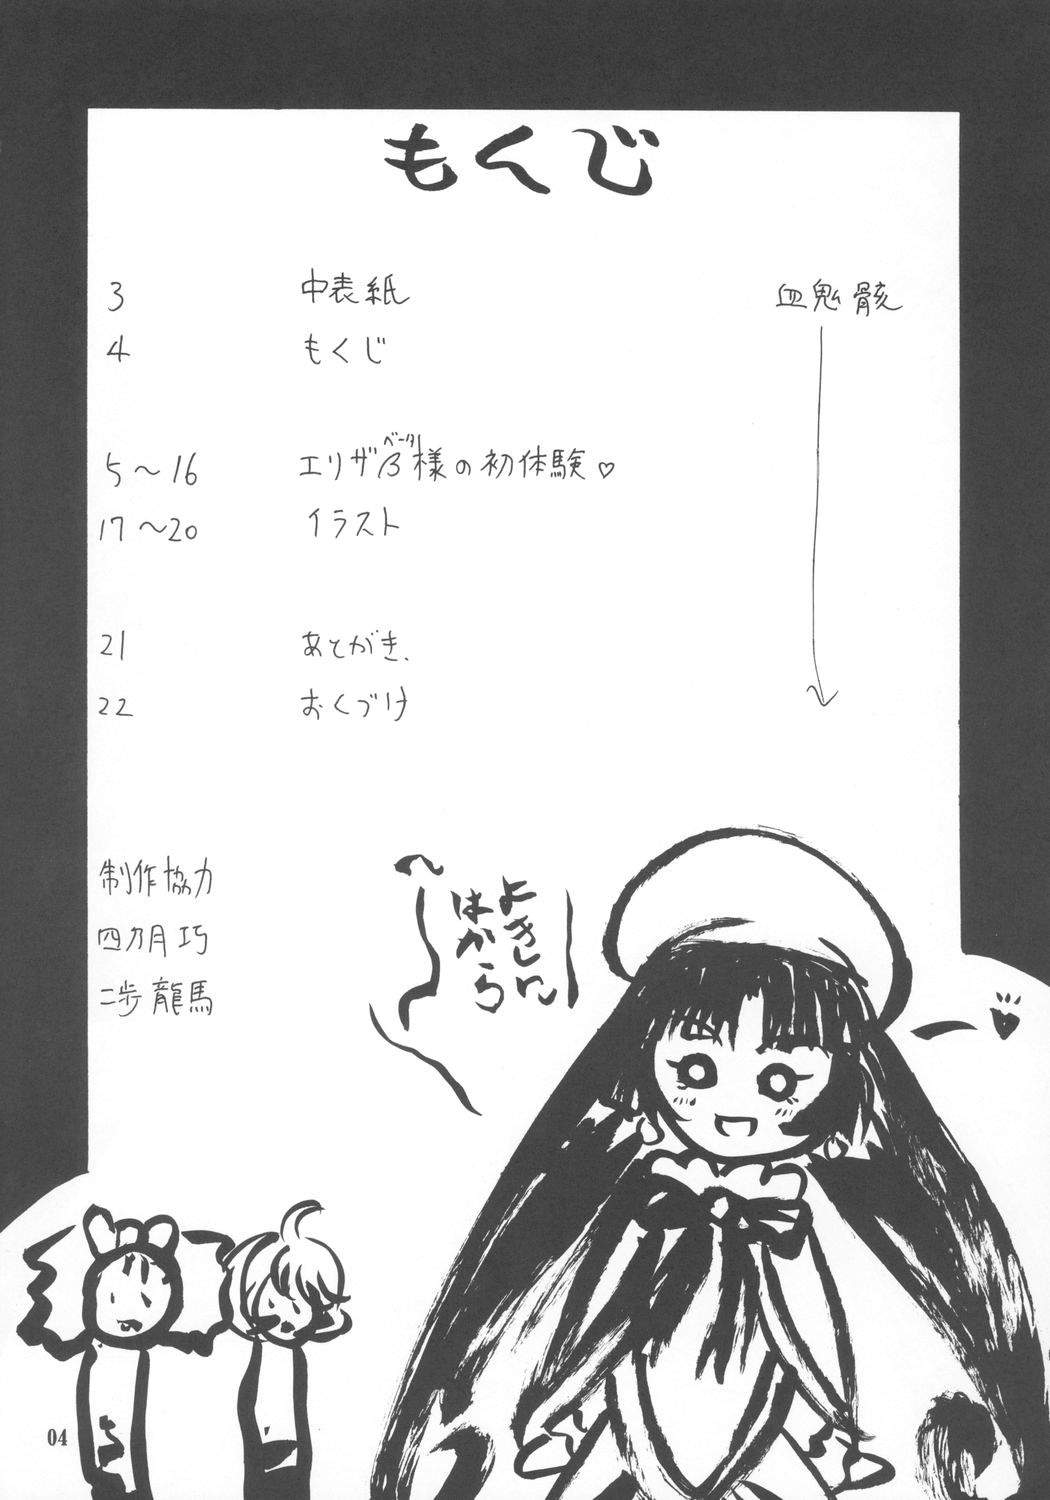 もくじ
3 中表紙 血鬼骸
4 もくじ
5〜16 エリザβ様の初体験♡
ベータ
17〜20 イラスト
21 あとがき、
22 おくづけ
制作協力
四カ月 巧
二歩 龍馬
よきに
はからへ
04